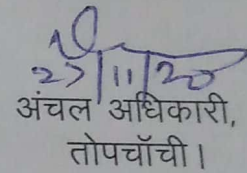 27/11/20
अंचल अधिकारी,
तोपचॉची।